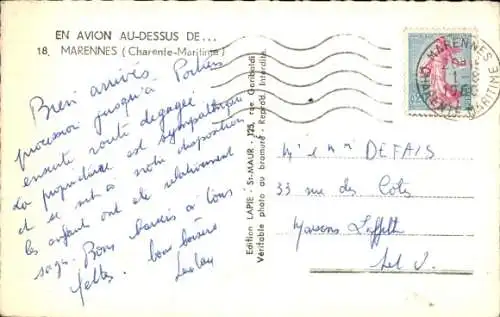 EN AVION AU-DESSUS DE...
18. MARENNES (Charente-Maritime)
Bien arrivés. Poitiers
procession jusqu'à
ensuite route dégagée
La propriétaire est sympathique
et se met à notre disposition
les enfants ont été relativement
sages. Bons baisers à tous
bons baisers
Edition LAPIE - St-MAUR - 125, rue Garibaldi
Véritable photo au bromure - Reprod. Interdite.
MARENNES
CHARENTE MARITIME
DEFAIS
33 rue des
Maisons Laffitte